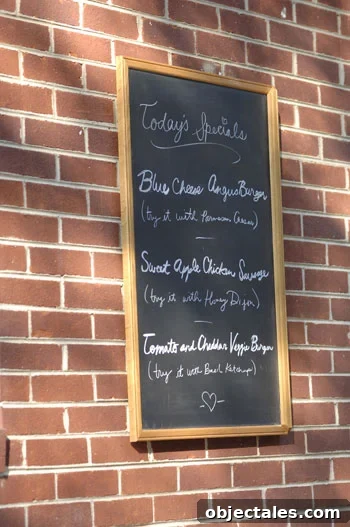 Today's Specials
Blue Cheese Angus Burger
(try it with Parmesan Cheese)
Sweet Apple Chicken Sausage
(try it with Honey Dijon)
Tomato and Cheddar Veggie Burger
(try it with Basil Ketchup)
objectales.com